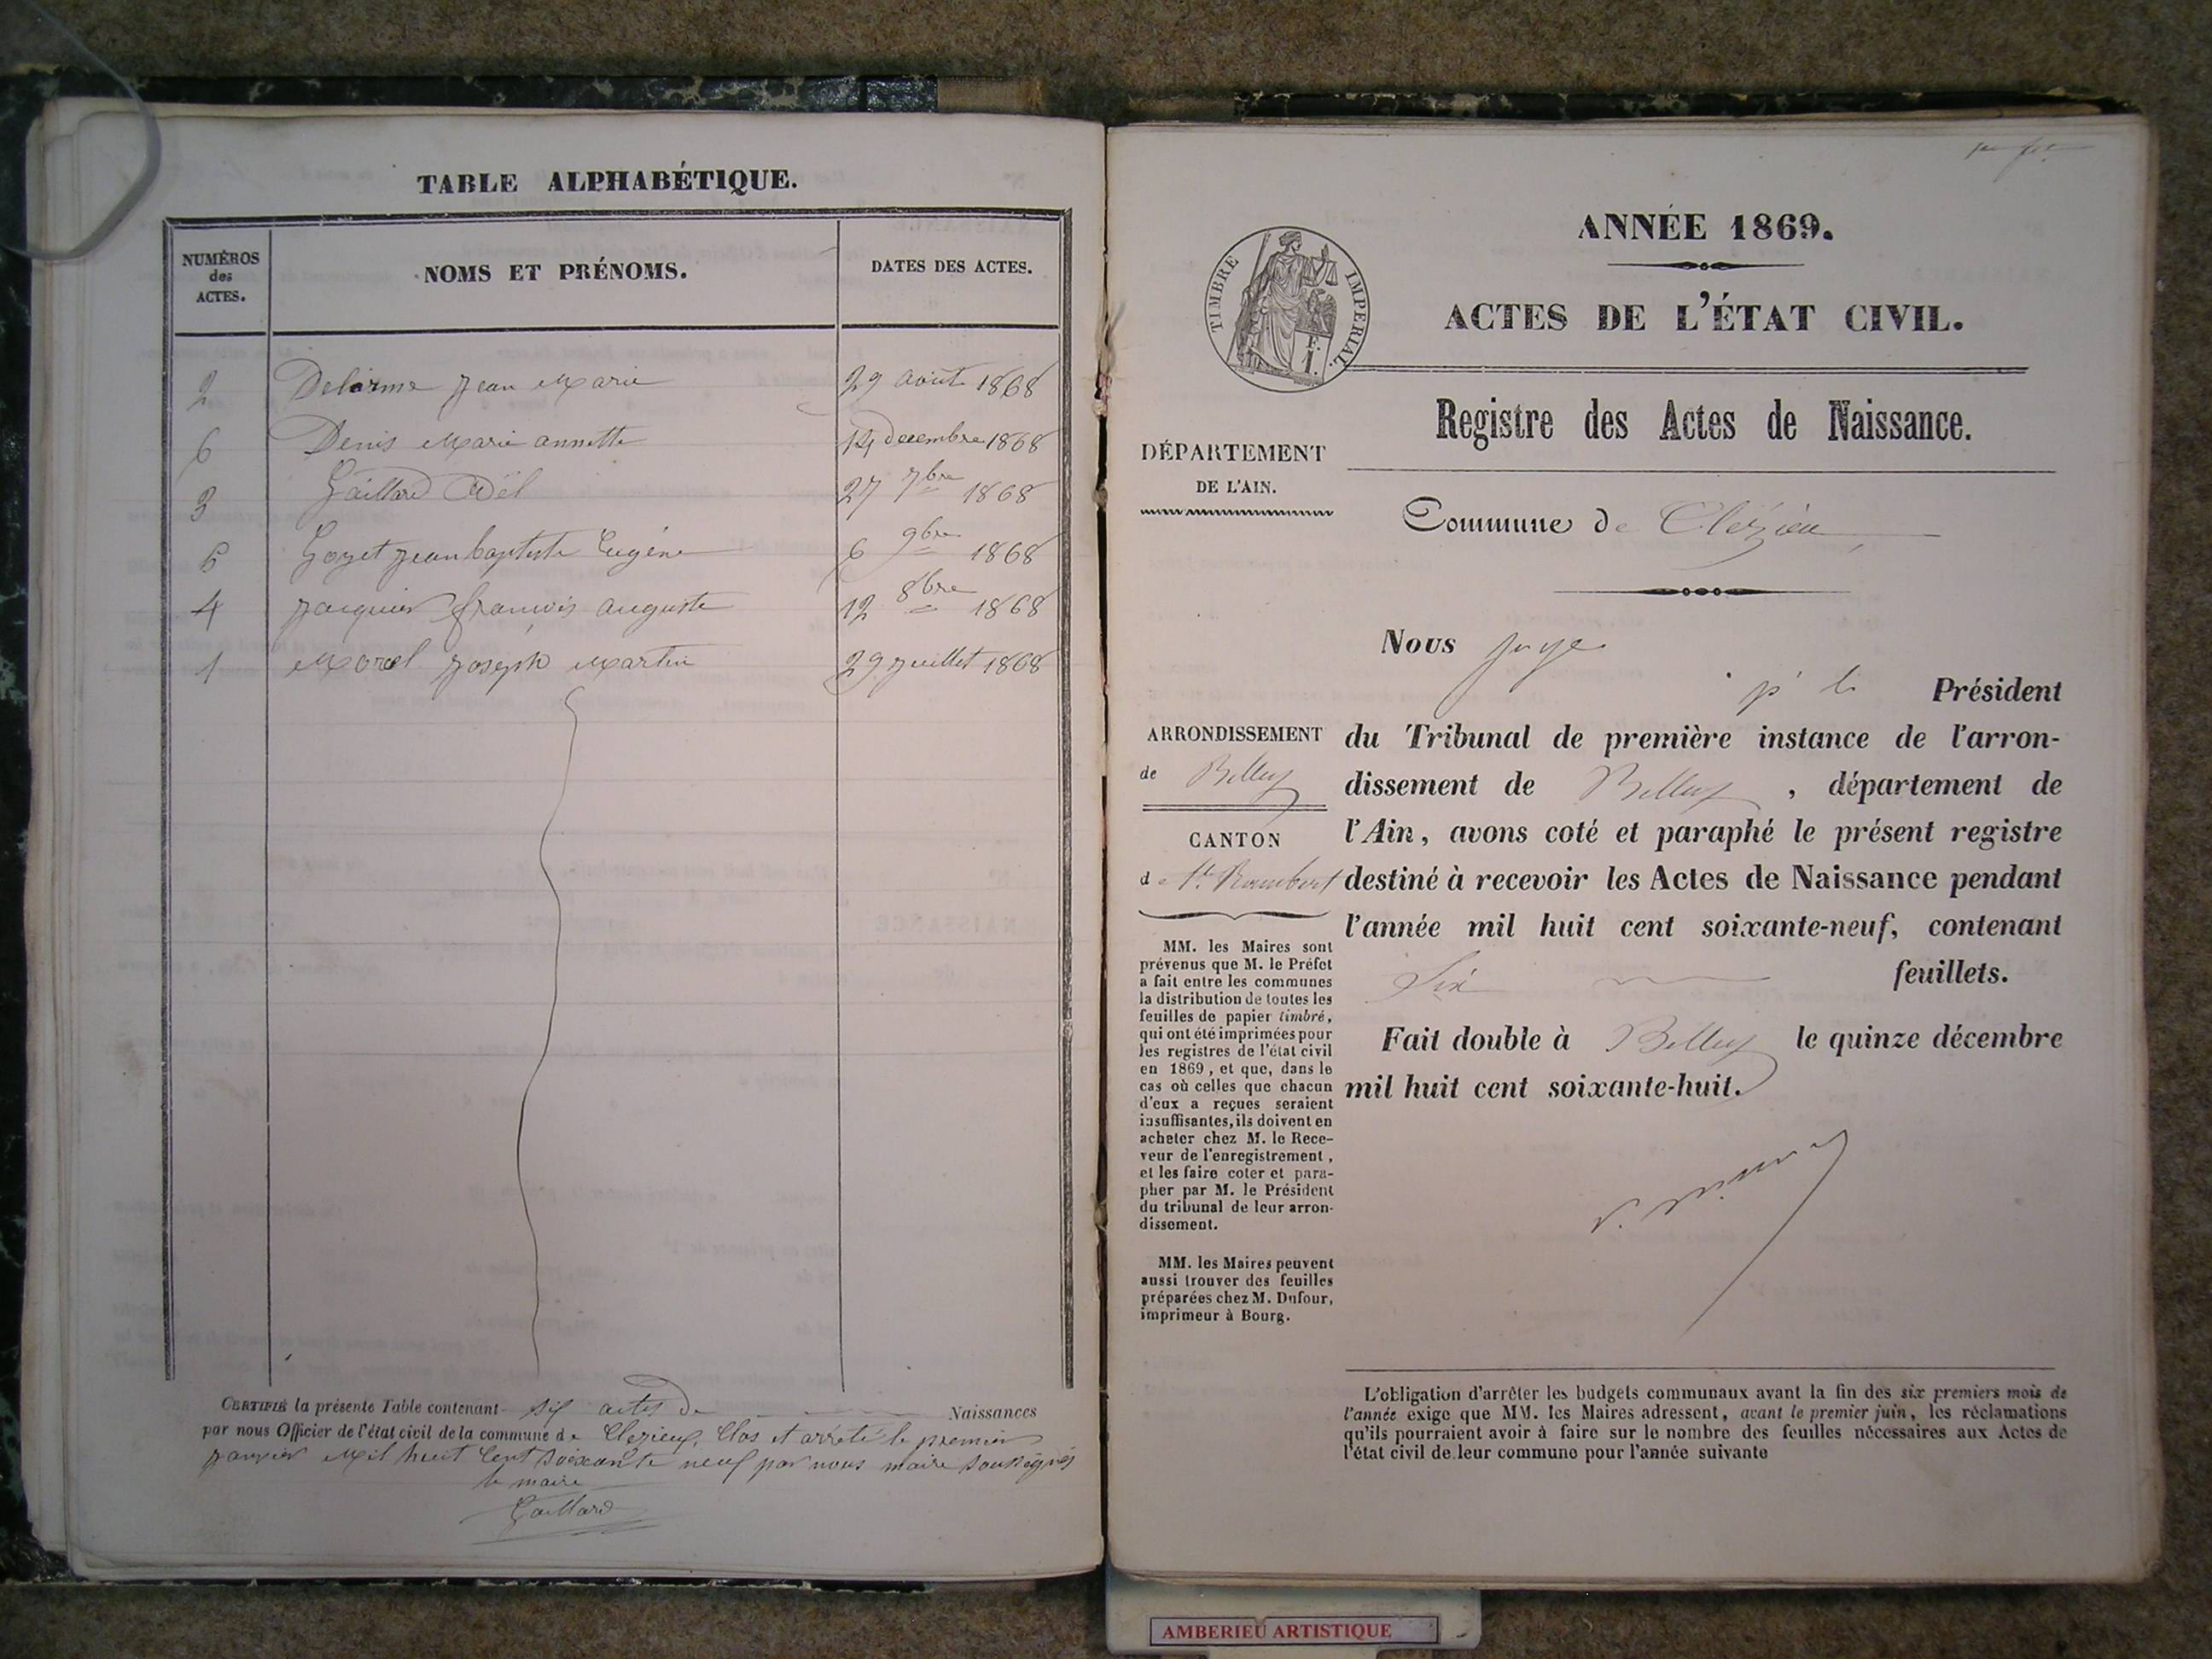 TABLE ALPHABÉTIQUE.
NUMÉROS
des
ACTES.
NOMS ET PRÉNOMS.
DATES DES ACTES.
2 Delorme Jean Marie 29 août 1868
6 Denis Marie annette 14 decembre 1868
3 Gaillard 27 7bre 1868
5 Gozet Jean baptiste Eugène 6 9bre 1868
4 Jacquier françois auguste 12 8bre 1868
1 Morel Joseph Martin 29 Juillet 1868
CERTIFIÉ la présente Table contenant six actes de Naissances
par nous Officier de l'état civil de la commune de Clezieu, Clos et arrêté le premier
Janvier Mil huit Cent soixante neuf par nous maire soussignés
le maire
Gaillard
ANNÉE 1869.
TIMBRE IMPERIAL.
ACTES DE L'ÉTAT CIVIL.
Registre des Actes de Naissance.
DÉPARTEMENT
DE L'AIN.
Commune de Clézieu
Nous Juge
pr le Président
du Tribunal de première instance de l'arron-
dissement de Belley, département de
l'Ain, avons coté et paraphé le présent registre
destiné à recevoir les Actes de Naissance pendant
l'année mil huit cent soixante-neuf, contenant
Six feuillets.
Fait double à Belley le quinze décembre
mil huit cent soixante-huit.
ARRONDISSEMENT
de Belley
CANTON
de St. Rambert
MM. les Maires sont
prévenus que M. le Préfet
a fait entre les communes
la distribution de toutes les
feuilles de papier timbré,
qui ont été imprimées pour
les registres de l'état civil
en 1869, et que, dans le
cas où celles que chacun
d'eux a reçues seraient
insuffisantes, ils doivent en
acheter chez M. le Rece-
veur de l'enregistrement,
et les faire coter et para-
pher par M. le Président
du tribunal de leur arron-
dissement.
MM. les Maires peuvent
aussi trouver des feuilles
préparées chez M. Dufour,
imprimeur à Bourg.
L'obligation d'arrêter les budgets communaux avant la fin des six premiers mois de
l'année exige que MM. les Maires adressent, avant le premier juin, les réclamations
qu'ils pourraient avoir à faire sur le nombre des feuilles nécessaires aux Actes de
l'état civil de leur commune pour l'année suivante
AMBERIEU ARTISTIQUE